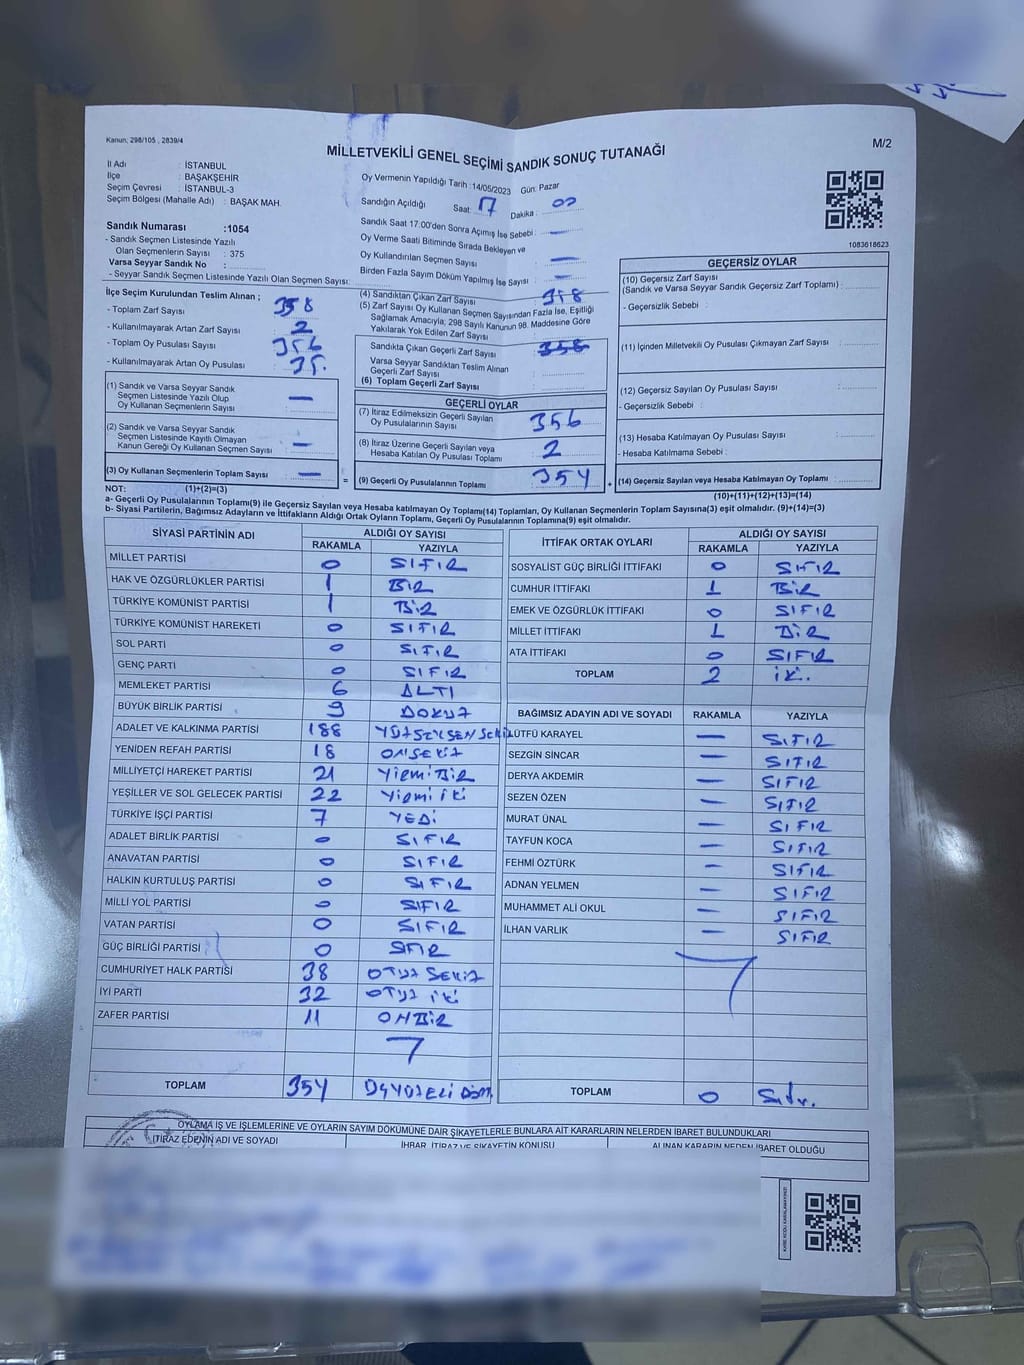 Kanun; 298/105 ; 2839/4
M/2
MİLLETVEKİLİ GENEL SEÇİMİ SANDIK SONUÇ TUTANAĞI
İl Adı : İSTANBUL
İlçe : BAŞAKŞEHİR
Seçim Çevresi : İSTANBUL-3
Seçim Bölgesi (Mahalle Adı) : BAŞAK MAH.
Sandık Numarası :1054
- Sandık Seçmen Listesinde Yazılı
Olan Seçmenlerin Sayısı : 375
Varsa Seyyar Sandık No :
- Seyyar Sandık Seçmen Listesinde Yazılı Olan Seçmen Sayısı:
Oy Vermenin Yapıldığı Tarih :14/05/2023 Gün: Pazar
Sandığın Açıldığı Saat: 17 Dakika : 00
Sandık Saat 17:00'den Sonra Açımış İse Sebebi : —
Oy Verme Saati Bitiminde Sırada Bekleyen ve
Oy Kullandırılan Seçmen Sayısı —
Birden Fazla Sayım Döküm Yapılmış İse Sayısı : —
1083618623
İlçe Seçim Kurulundan Teslim Alınan ;
- Toplam Zarf Sayısı 358
- Kullanılmayarak Artan Zarf Sayısı 2
- Toplam Oy Pusulası Sayısı 356
- Kullanılmayarak Artan Oy Pusulası
(1) Sandık ve Varsa Seyyar Sandık
Seçmen Listesinde Yazılı Olup
Oy Kullanan Seçmenlerin Sayısı —
(2) Sandık ve Varsa Seyyar Sandık
Seçmen Listesinde Kayıtlı Olmayan
Kanun Gereği Oy Kullanan Seçmen Sayısı —
(3) Oy Kullanan Seçmenlerin Toplam Sayısı —
(4) Sandıktan Çıkan Zarf Sayısı 358
(5) Zarf Sayısı Oy Kullanan Seçmen Sayısından Fazla İse, Eşitliği
Sağlamak Amacıyla; 298 Sayılı Kanunun 98. Maddesine Göre
Yakılarak Yok Edilen Zarf Sayısı
Sandıkta Çıkan Geçerli Zarf Sayısı 358
Varsa Seyyar Sandıktan Teslim Alınan
Geçerli Zarf Sayısı
(6) Toplam Geçerli Zarf Sayısı
GEÇERLİ OYLAR
(7) İtiraz Edilmeksizin Geçerli Sayılan
Oy Pusulalarının Sayısı 356
(8) İtiraz Üzerine Geçerli Sayılan veya
Hesaba Katılan Oy Pusulası Toplamı 2
= (9) Geçerli Oy Pusulalarının Toplamı 354 +
GEÇERSİZ OYLAR
(10) Geçersiz Zarf Sayısı
(Sandık ve Varsa Seyyar Sandık Geçersiz Zarf Toplamı) :
- Geçersizlik Sebebi :
(11) İçinden Milletvekili Oy Pusulası Çıkmayan Zarf Sayısı :
(12) Geçersiz Sayılan Oy Pusulası Sayısı :
- Geçersizlik Sebebi :
(13) Hesaba Katılmayan Oy Pusulası Sayısı :
- Hesaba Katılmama Sebebi :
(14) Geçersiz Sayılan veya Hesaba Katılmayan Oy Toplamı :
NOT: (1)+(2)=(3)
(10)+(11)+(12)+(13)=(14)
a- Geçerli Oy Pusulalarının Toplamı(9) ile Geçersiz Sayılan veya Hesaba katılmayan Oy Toplamı(14) Toplamları, Oy Kullanan Seçmenlerin Toplam Sayısına(3) eşit olmalıdır. (9)+(14)=(3)
b- Siyasi Partilerin, Bağımsız Adayların ve İttifakların Aldığı Ortak Oyların Toplamı, Geçerli Oy Pusulalarının Toplamına(9) eşit olmalıdır.
SİYASİ PARTİNİN ADI ALDIĞI OY SAYISI
RAKAMLA YAZIYLA
MİLLET PARTİSİ 0 SIFIR
HAK VE ÖZGÜRLÜKLER PARTİSİ 1 BİR
TÜRKİYE KOMÜNİST PARTİSİ 1 BİR
TÜRKİYE KOMÜNİST HAREKETİ 0 SIFIR
SOL PARTİ 0 SIFIR
GENÇ PARTİ 0 SIFIR
MEMLEKET PARTİSİ 6 ALTI
BÜYÜK BİRLİK PARTİSİ 9 DOKUZ
ADALET VE KALKINMA PARTİSİ 188 YÜZSEKSENSEKİZ
YENİDEN REFAH PARTİSİ 18 ONSEKİZ
MİLLİYETÇİ HAREKET PARTİSİ 21 YİRMİBİR
YEŞİLLER VE SOL GELECEK PARTİSİ 22 YİRMİ İKİ
TÜRKİYE İŞÇİ PARTİSİ 7 YEDİ
ADALET BİRLİK PARTİSİ 0 SIFIR
ANAVATAN PARTİSİ 0 SIFIR
HALKIN KURTULUŞ PARTİSİ 0 SIFIR
MİLLİ YOL PARTİSİ 0 SIFIR
VATAN PARTİSİ 0 SIFIR
GÜÇ BİRLİĞİ PARTİSİ 0 SIFIR
CUMHURİYET HALK PARTİSİ 38 OTUZ SEKİZ
İYİ PARTİ 32 OTUZ İKİ
ZAFER PARTİSİ 11 ONBİR
TOPLAM 354
İTTİFAK ORTAK OYLARI ALDIĞI OY SAYISI
RAKAMLA YAZIYLA
SOSYALİST GÜÇ BİRLİĞİ İTTİFAKI 0 SIFIR
CUMHUR İTTİFAKI 1 BİR
EMEK VE ÖZGÜRLÜK İTTİFAKI 0 SIFIR
MİLLET İTTİFAKI 1 BİR
ATA İTTİFAKI 0 SIFIR
TOPLAM 2 İKİ.
BAĞIMSIZ ADAYIN ADI VE SOYADI RAKAMLA YAZIYLA
LÜTFÜ KARAYEL — SIFIR
SEZGİN SİNCAR — SIFIR
DERYA AKDEMİR — SIFIR
SEZEN ÖZEN — SIFIR
MURAT ÜNAL — SIFIR
TAYFUN KOCA — SIFIR
FEHMİ ÖZTÜRK — SIFIR
ADNAN YELMEN — SIFIR
MUHAMMET ALİ OKUL — SIFIR
İLHAN VARLIK — SIFIR
TOPLAM 0 Sıfır.
OYLAMA İŞ VE İŞLEMLERİNE VE OYLARIN SAYIM DÖKÜMÜNE DAİR ŞİKAYETLERLE BUNLARA AİT KARARLARIN NELERDEN İBARET BULUNDUKLARI
İTİRAZ EDENİN ADI VE SOYADI İHBAR, İTİRAZ VE ŞİKAYETİN KONUSU ALINAN KARARIN NEDEN İBARET OLDUĞU